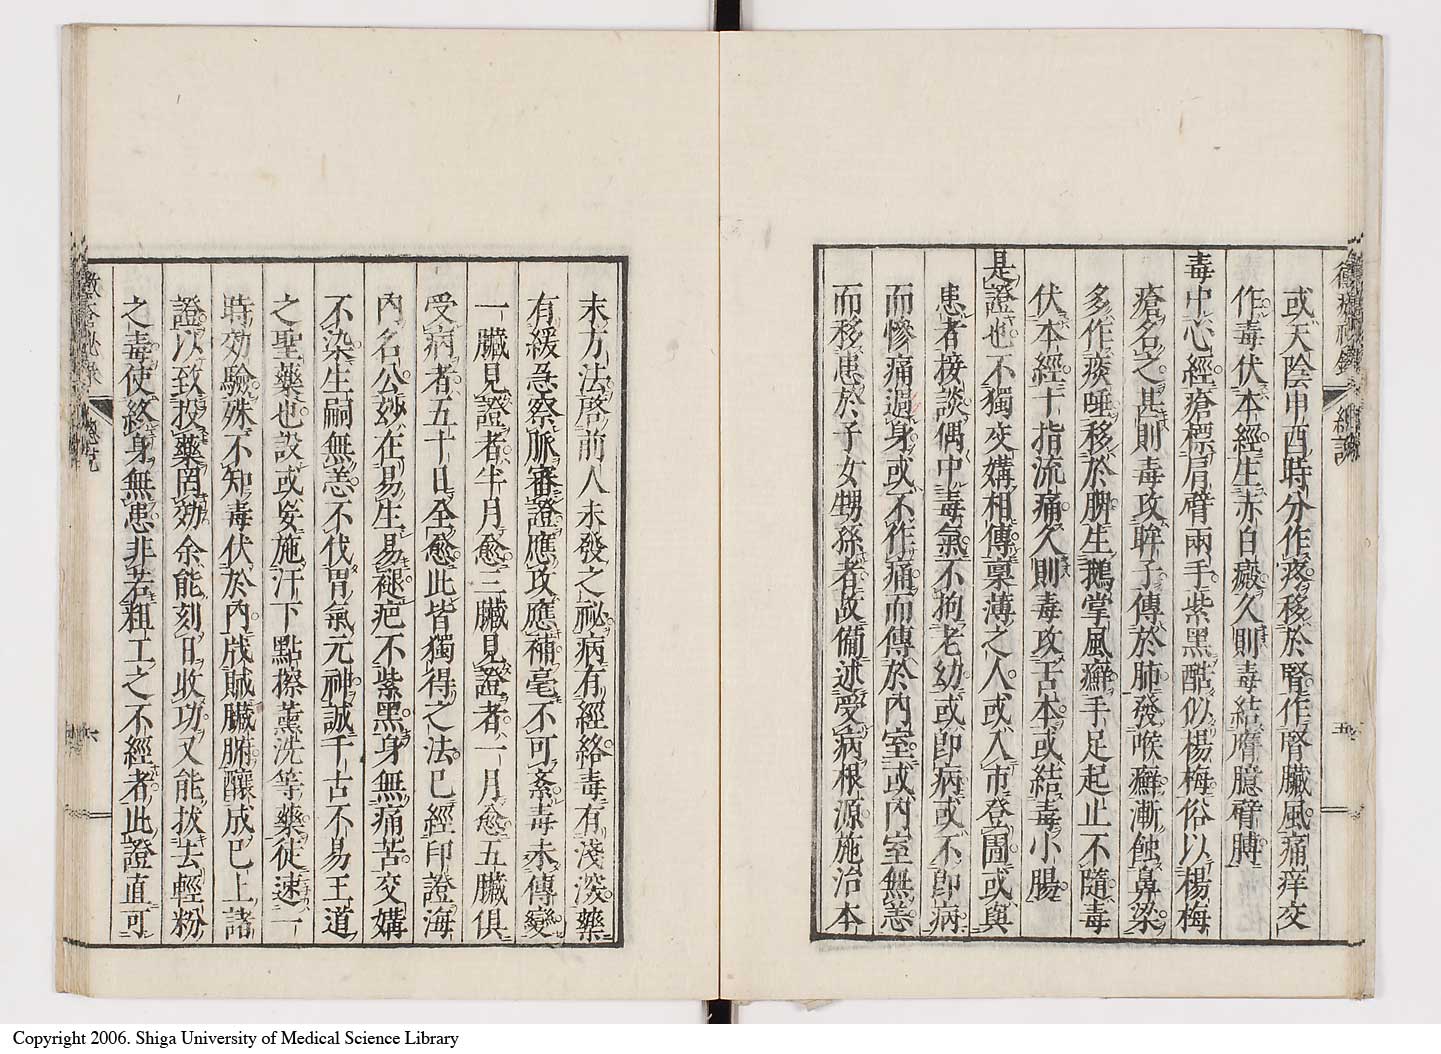 黴瘡秘錄 總說 五
或天陰申酉時分作疼移於腎作腎臟風痛痒交
作毒伏本經生赤白癜久則毒結膺臆臂膊
毒中心經瘡標肩臂兩手紫黑酷似楊梅俗以楊梅
瘡名之甚則毒攻眸子傳於肺發喉癬漸蝕鼻梁
多作痰唾移於脾生鵝掌風癬手足起止不隨毒
伏本經十指流痛久則毒攻舌本或結毒小腸
是證也不獨交媾相傳稟薄之人或入市登圊或與
患者接談偶中毒氣不拘老幼或卽病或不卽病
而慘痛週身或不作痛而傳於內室或內室無恙
而移患於子女甥孫者故備述受病根源施治本
末方法啓前人未發之祕病有經絡毒有淺深藥
有緩急察脈審證應攻應補毫不可紊毒未傳變
一臟見證者半月愈三臟見證者一月愈五臟俱
受病者五十日全愈此皆獨得之法已經印證海
內名公妙在易生易褪疤不紫黑身無痛苦交媾
不染生嗣無恙不伐胃氣元神誠千古不易王道
之聖藥也設或妄施汗下點擦薰洗等藥徒速一
時効驗殊不知毒伏於內戕賊臟腑釀成已上諸
證以致投藥罔効余能刻日收功又能拔去輕粉
之毒使終身無患非若粗工之不經者此證直可
黴瘡秘錄 總說 六
Copyright 2006. Shiga University of Medical Science Library